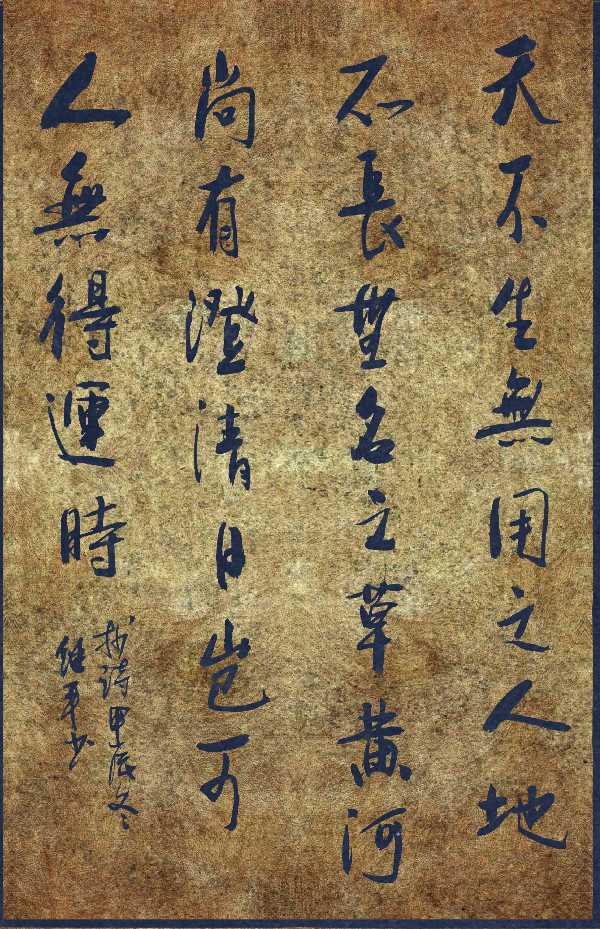 天不生無用之人地
不長無名之草黄河
尚有澄清日岂可
人無得運時
抄诗甲辰冬
继军书